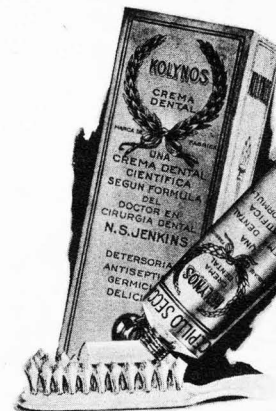 KOLYNOS
CREMA
DENTAL
MARCA DE FABRICA
UNA
CREMA DENTAL
CIENTIFICA
SEGUN FORMULA
DEL
DOCTOR EN
CIRURGIA DENTAL
N.S. JENKINS
DETERSORIA
ANTISEPT
GERMICI
DELICI
KOLYNOS
CREMA
DENTAL
UNA
DENTAL
CIENTIFICA
FORMULA
PILLO SECO